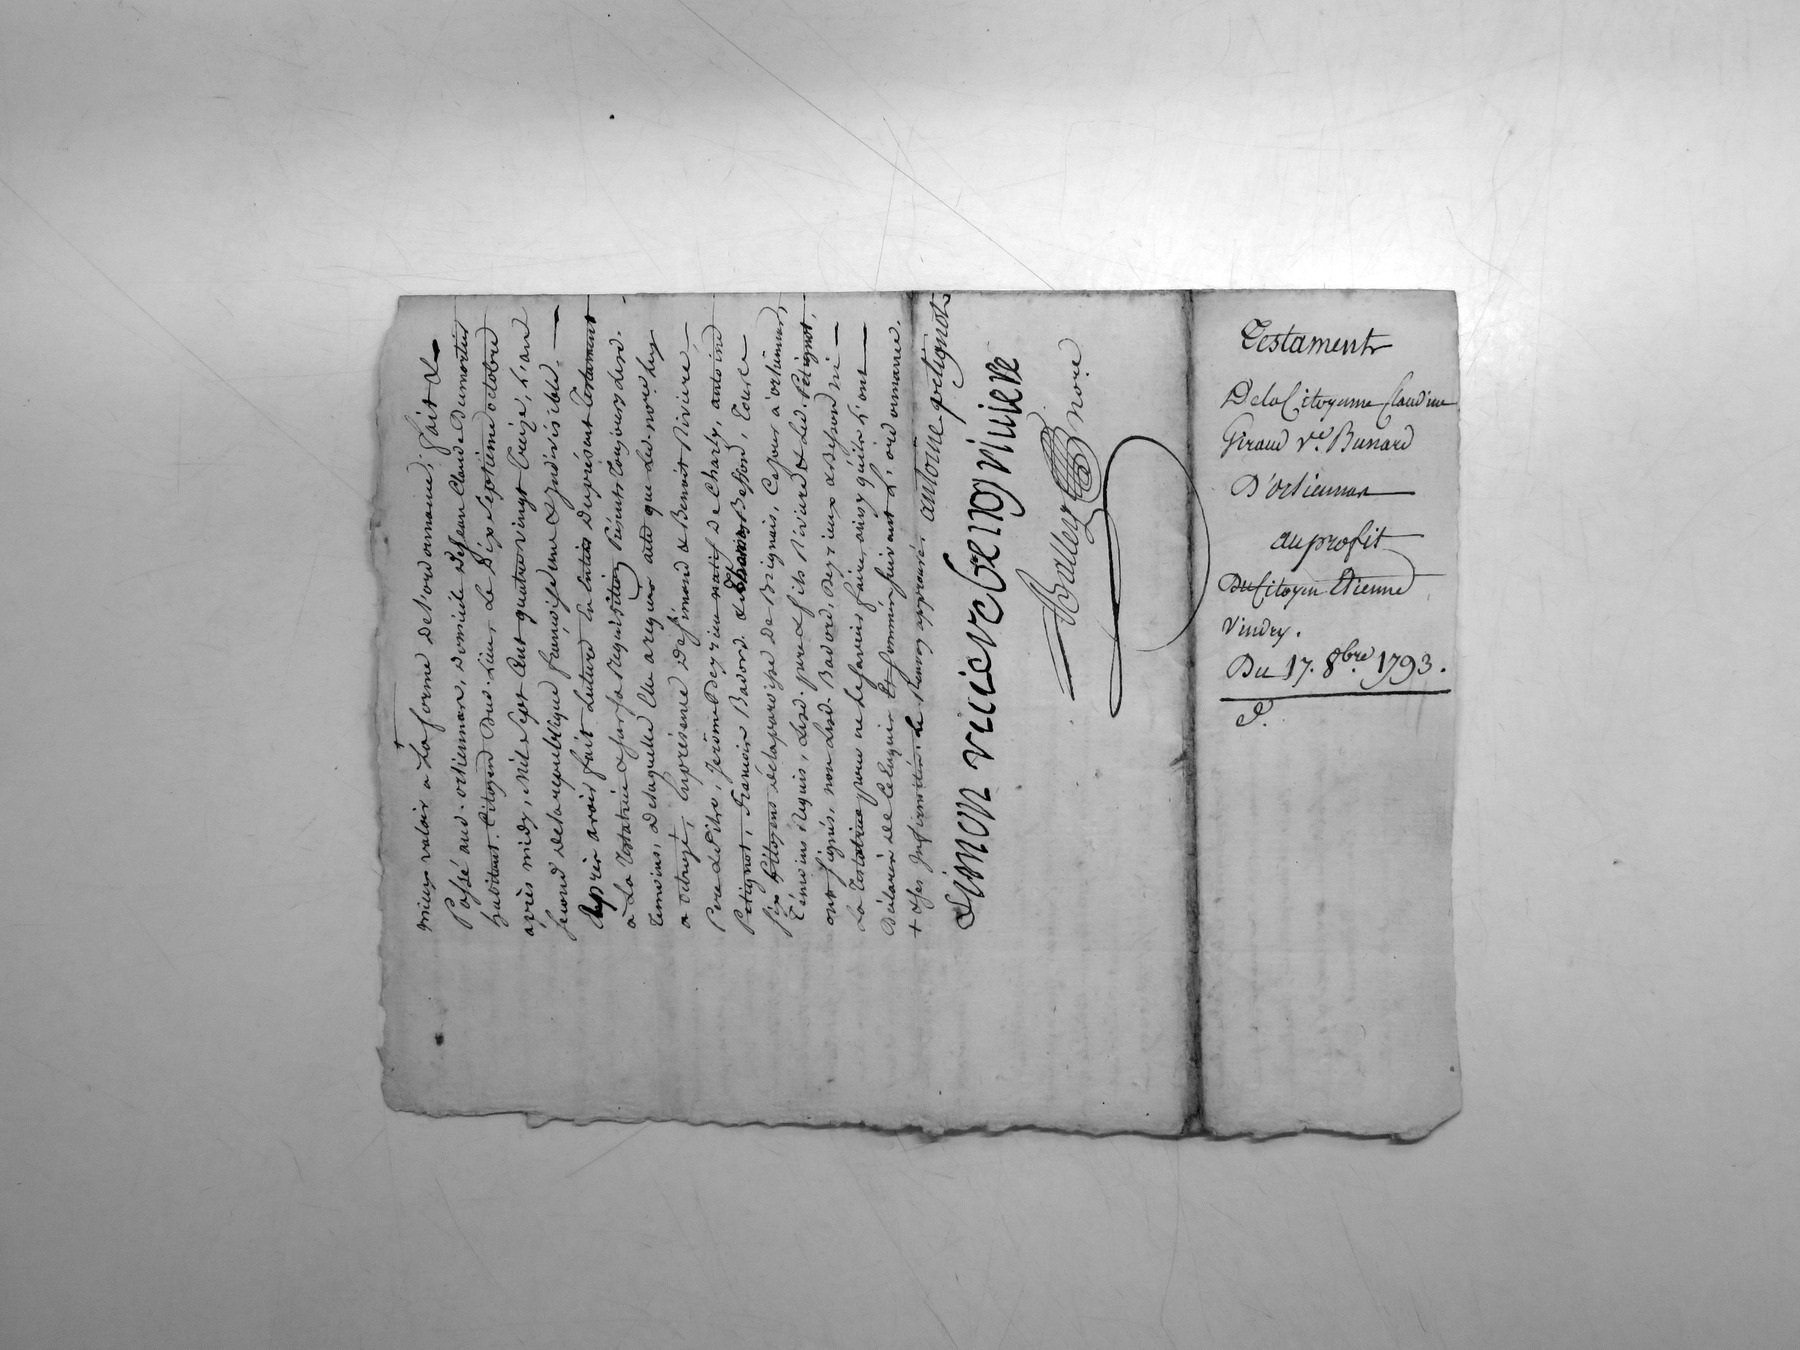 mieux valoir à la forme de l'ordonnance, fait &
Passé aud. orliennas, domicile de Jean Claude Dumortier
habitant. Citoyen dud. Lieu, Le Dix Septieme octobre
après midy, Mil Sept Cent quatre vingt Treize, L'an
second de la republique françoise une & Indivisible.
Après avoir fait Lecture en Entier du présent Testament
à La Testatrice & par sa requisition Présents Toujours lesd.
temoins, de laquelle Elle a requis acte que Led. nore. luy
a octroyé, En présence de Simond & Benoit Riviere,
Pere & fils, Jerôme natif de Charly, antoine
Petignot, François Badord & Besson, Tous Le
Six Citoyens de la paroisse de Brignais, Ce jour à orliennas,
Témoins Requis, Lesd. pere & fils Riviere & Led. Petignot,
ont Signés, non Lesd. Badord, & Besson ni
La Testatrice pour ne Le Savoir faire, ainsy qu'ils L'ont
Déclarés de Ce Enquis Et Sommés suivant L'ordonnance.
+ & ses Infirmités. Le Renvoy approuvé. antoine petignot
Simon riviere benoy riviere
nore
Testament
De la Citoyenne Claudine
Giraud Ve. Bunard
D'orliennas
au profit
Du Citoyen Etienne
Vindry.
Du 17. 8bre. 1793.